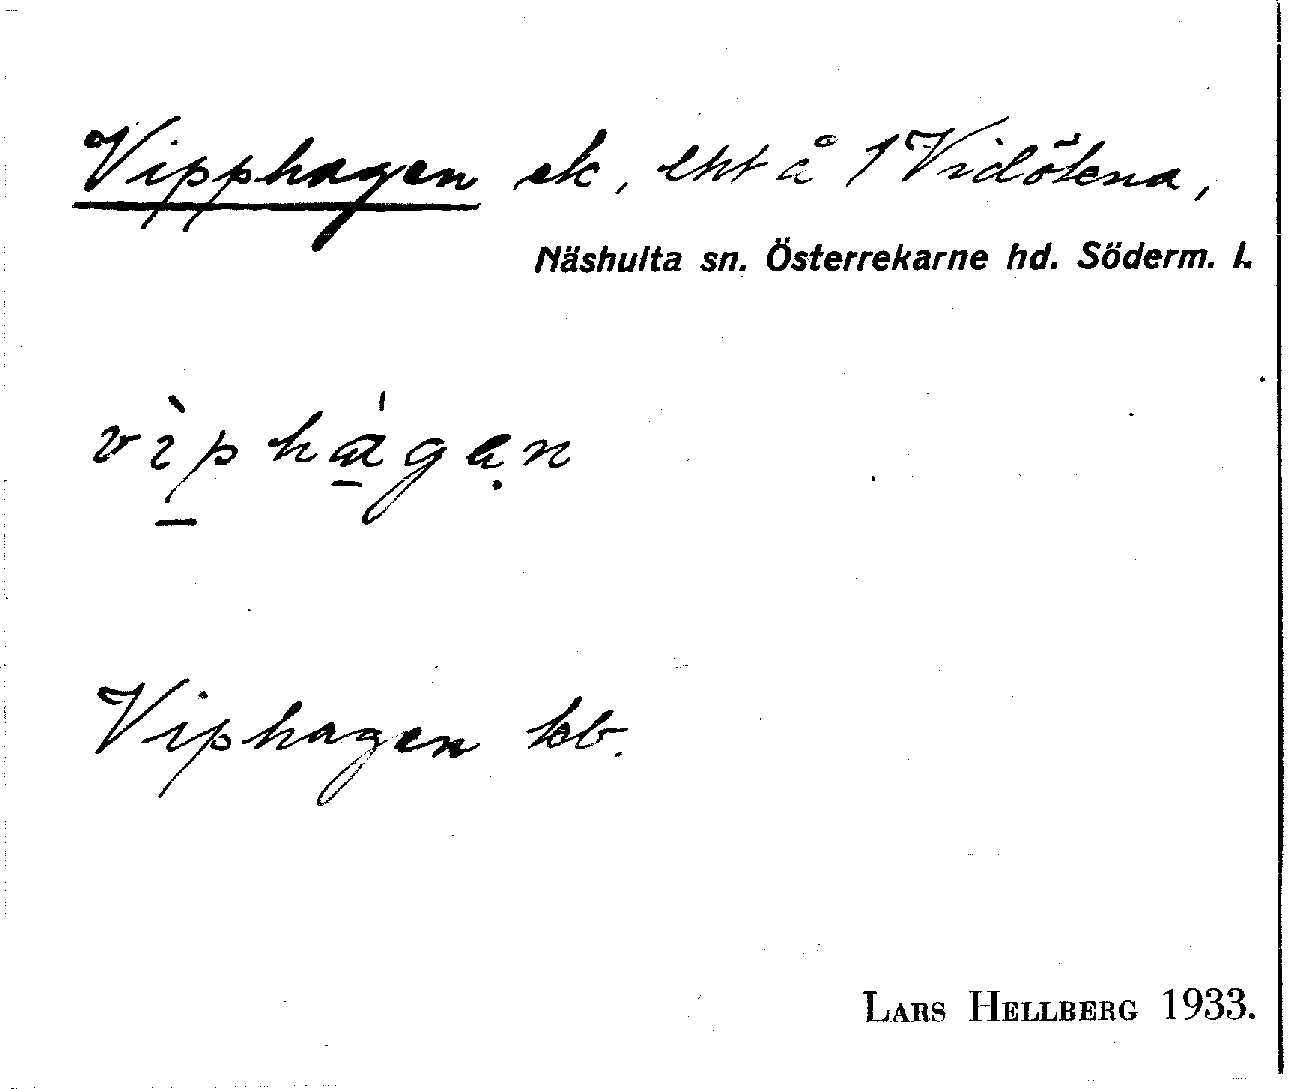 Vipphagen ek, lht å 1 Vidökna,
Näshulta sn. Österrekarne hd. Söderm. l.
vìphágen
Viphagen kb.
LARS HELLBERG 1933.